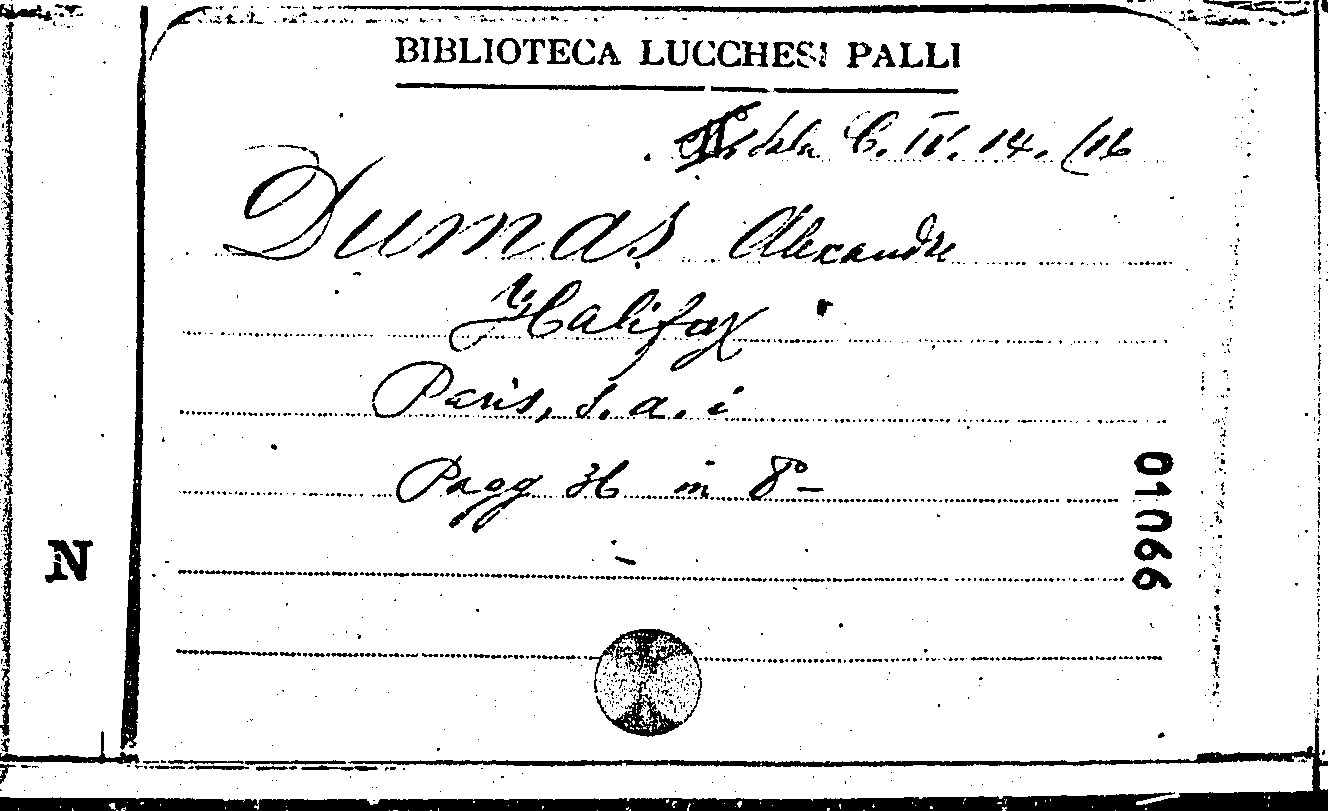 BIBLIOTECA LUCCHESI PALLI
Sala C. IV. 14. (16
Dumas Alexandre
Halifax
Paris, s. a. i
Pagg 36 in 8º -
01066
N